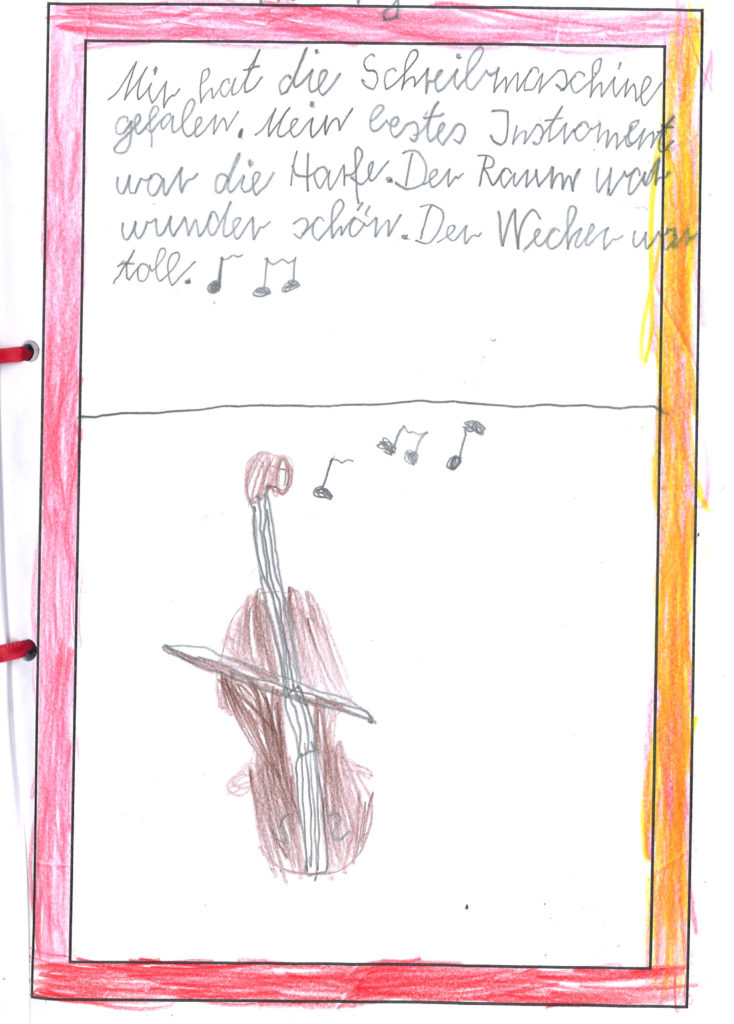 Mir hat die Schreibmaschine
gefalen. Mein bestes Instroment
war die Harfe. Der Raum war
wunder schön. Der Wecker war
toll.